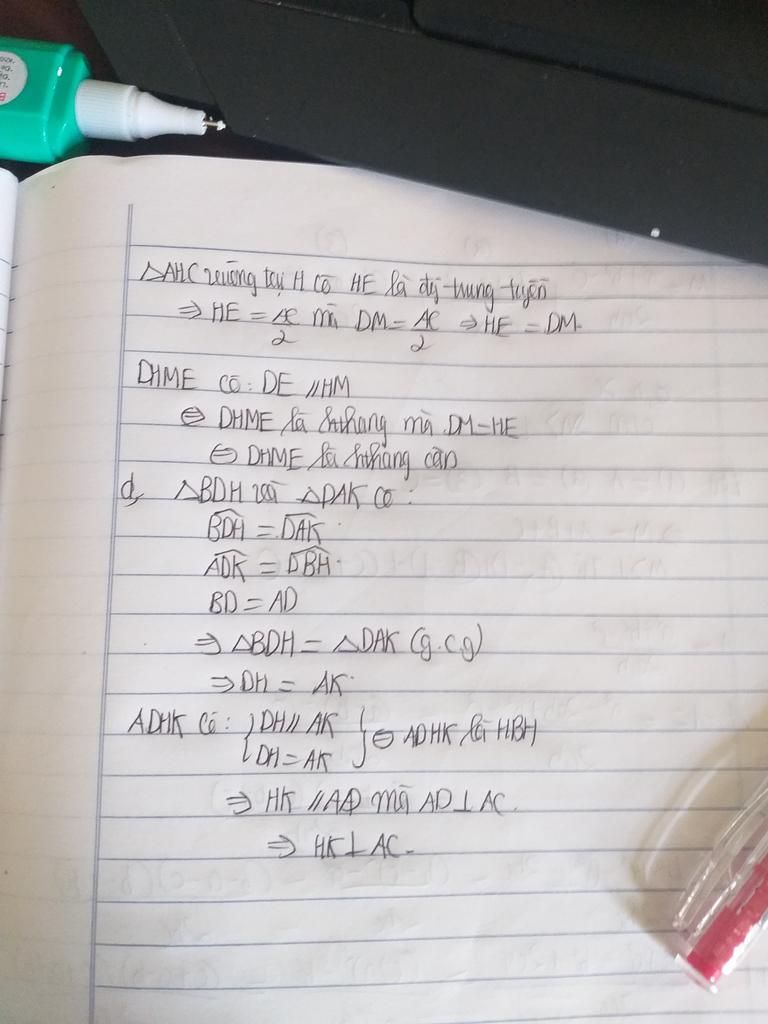 △AHC vuông tại H có HE là đg trung tuyến
⇒ HE = AC/2 mà DM = AC/2 ⇒ HE = DM.
DHME có: DE // HM
⇔ DHME là hthang mà DM = HE
⇔ DHME là hthang cân
d, △BDH và △DAK có:
BDH = DAK
ADK = DBH
BD = AD
⇒ △BDH = △DAK (g.c.g)
⇒ DH = AK
ADHK có: { DH // AK
DH = AK } ⇔ ADHK là HBH
⇒ HK // AD mà AD ⊥ AC.
⇒ HK ⊥ AC.